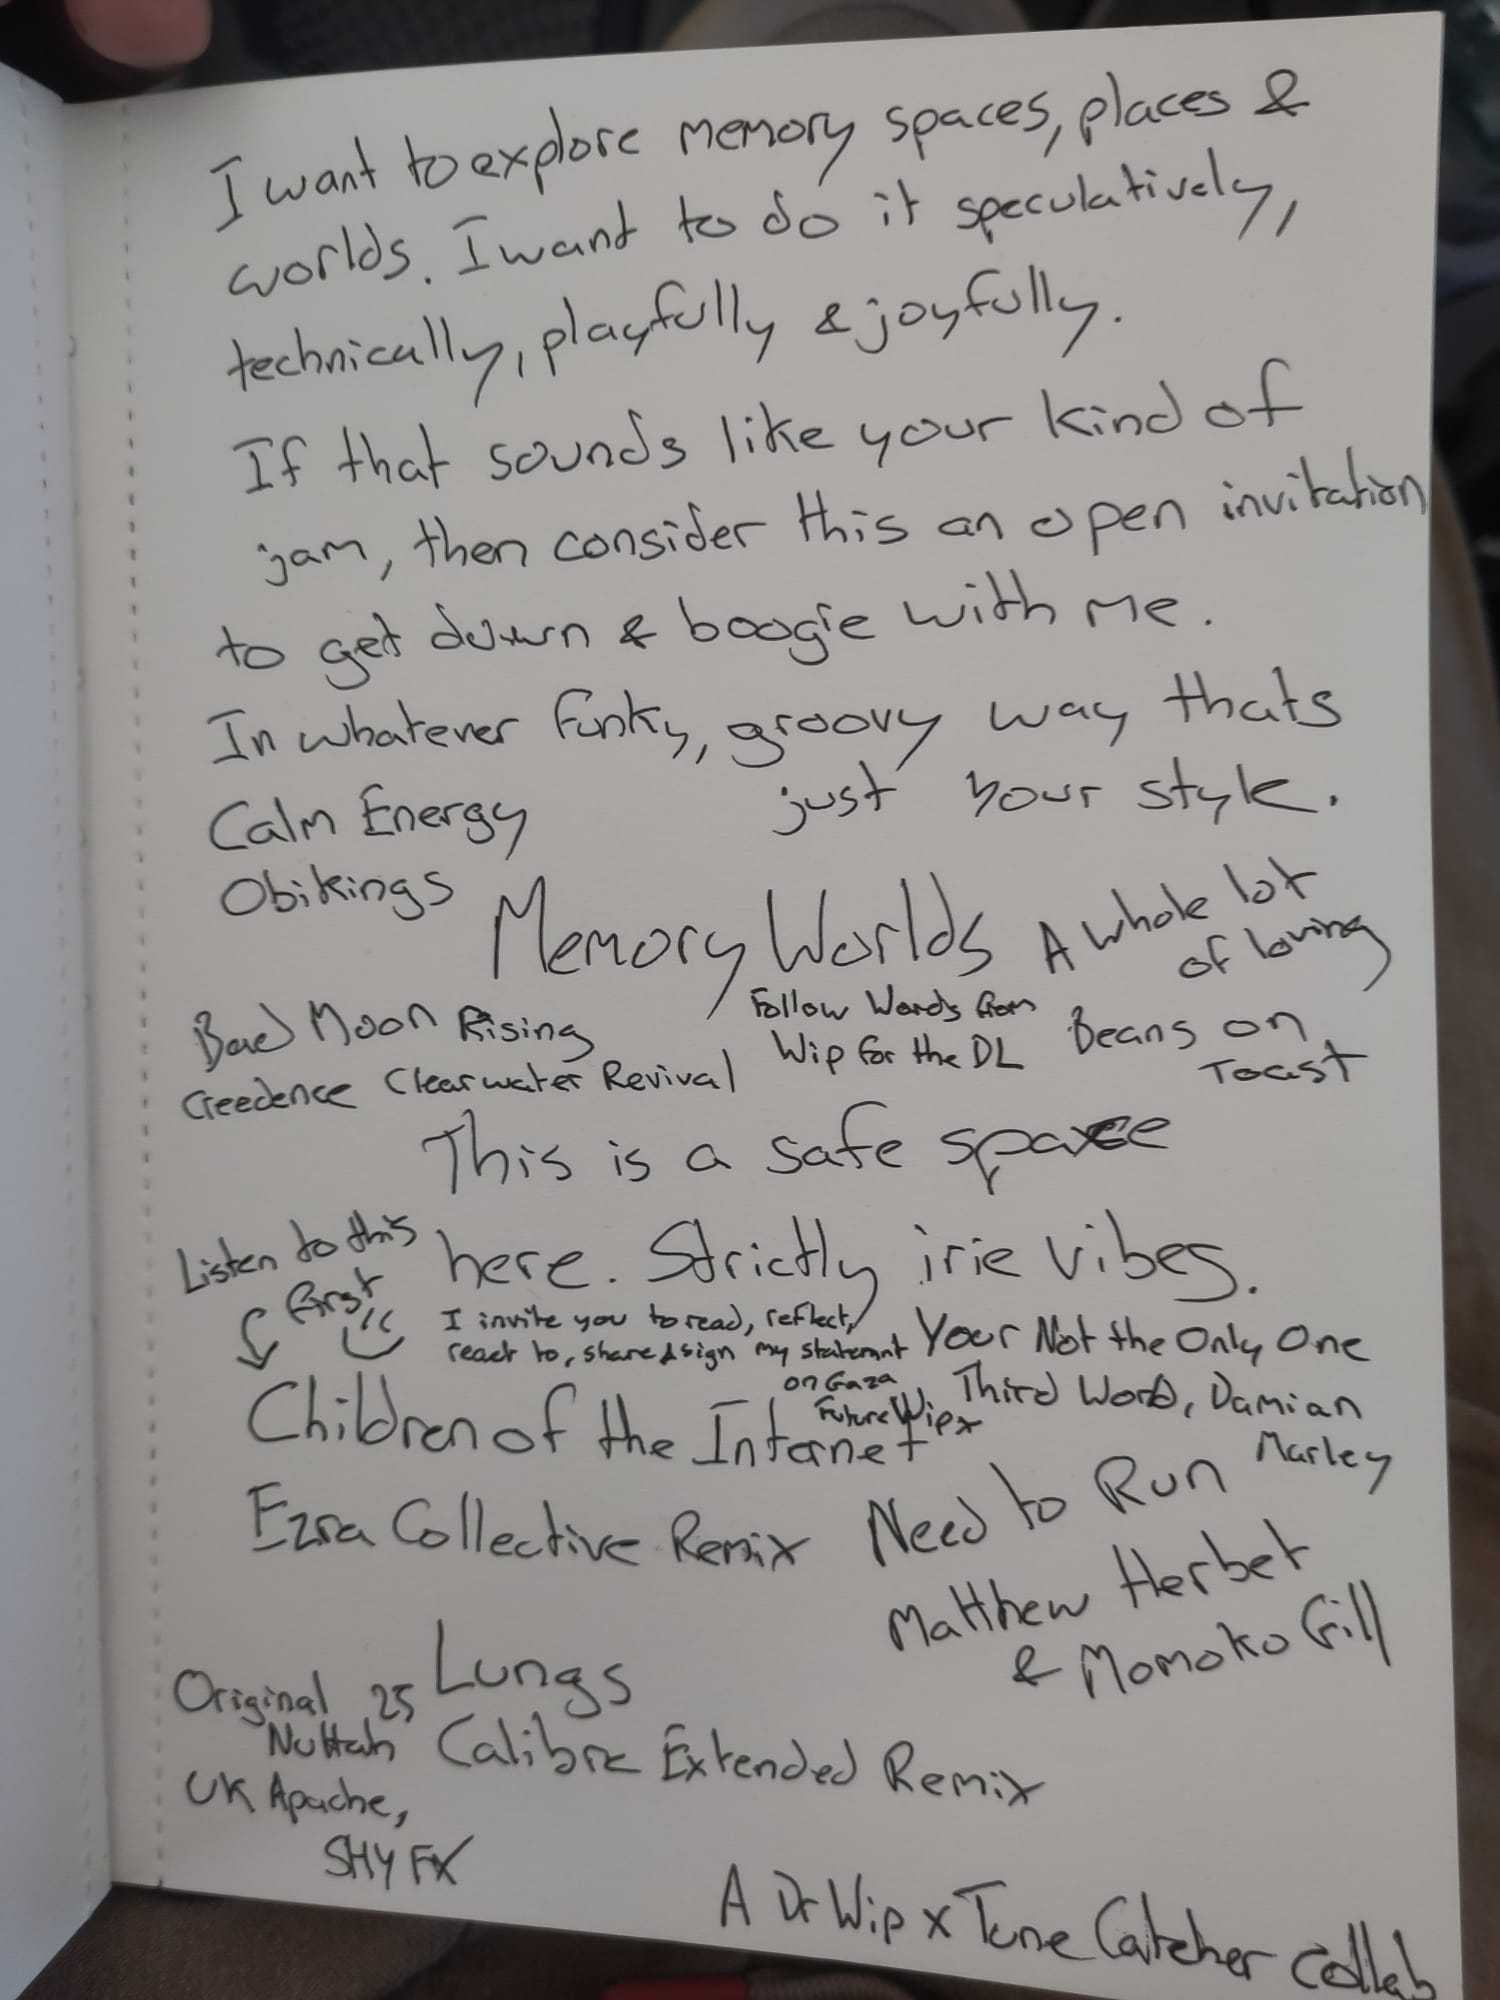 I want to explore memory spaces, places &
worlds. I want to do it speculatively,
technically, playfully & joyfully.
If that sounds like your kind of
jam, then consider this an open invitation
to get down & boogie with me.
In whatever funky, groovy way thats
just your style.
Calm Energy
Obikings
Memory Worlds
A whole lot
of loving
Beans on
Toast
Bad Moon Rising
Creedence Clearwater Revival
Follow Words from
Wip for the DL
This is a safe space
here. Strictly irie vibes.
Listen to this
first
I invite you to read, reflect,
react to, share & sign my statemnt
on Gaza
Future Wip x
Your Not the Only One
Third World, Damian
Marley
Children of the Internet
Ezra Collective Remix
Need to Run
Matthew Herbet
& Momoko Gill
Lungs
Calibre Extended Remix
Original 25
Nuttah
UK Apache,
SHY FX
A Dr Wip x Tune Catcher collab